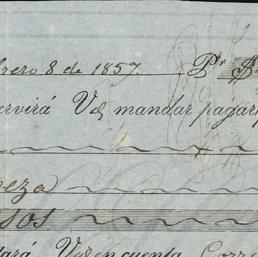 brero 8 de 1857. Pr. $
ervirá Vd. mandar pagar
eza
sos
tará Vd. en cuenta Corr